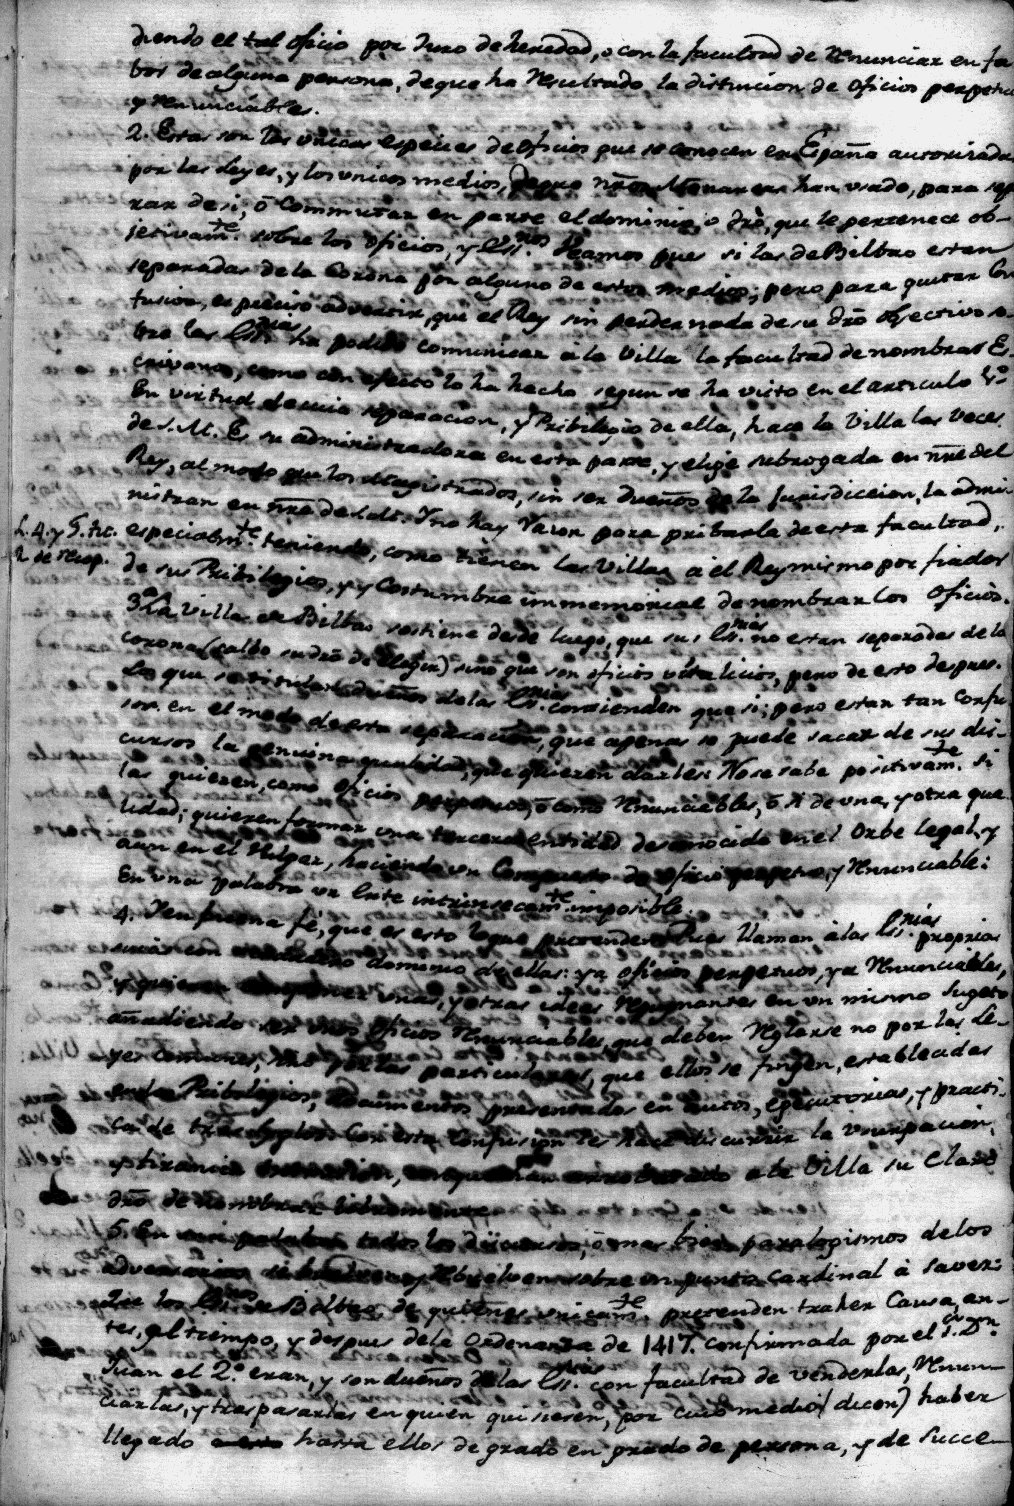 diendo el tal oficio por Juro de heredad, o con la facultad de Renunciar en fa
bor de alguna persona, de que ha Resultado la distincion de Oficios perpetuos
y Renunciables.
2. Estas son las unicas especies de oficios que se conocen en España autorizadas
por las Leyes, y los unicos medios, de que nros Monarcas han usado, para sepa
rar de si, ó Commutar en parte el dominio, o dro, que le pertenece ob-
jetivamte. sobre los oficios, y Essnos. Veamos pues si las de Bilbao estan
separadas de la Corona por alguno de estos medios; pero para quitar Con
fusion, es preciso advertir, que el Rey sin perder nada de su dro obgectivo so
bre las Essnias. ha podido comunicar á la Villa la facultad de nombrar Es-
crivanos, como con efecto lo ha hecho segun se ha visto en el articulo 1º.
En virtud de cuia separacion, y Pribilegio de ella, hace la Villa las veces
de S.M. Es su administradora en esta parte, y elige subrogada en nre del
Rey, al modo que los Magistrados, sin ser dueños de la Jurisdiccion, la admi
nistran en nre de S.M. Y no hay razon para pribarla de esta facultad,
L. 4. y 5. tit. especialmte. teniendo, como tienen las Villas á el Rey mismo por fiador
2. de recop. de sus Pribilegios, y Costumbre immemorial de nombrar los Oficios.
3ª La Villa de Bilbao sostiene desde luego, que sus Essnias. no estan separadas de la
corona (salbo su dro de elegir) sino que son oficios vitalicios, pero de esto despues.
Los que se titulan dueños de las Essnias. contienden que si; pero estan tan confu
sos en el modo de esta separacion, que apenas se puede sacar de sus dis-
cursos la genuina qualidad, que quieren darles: No se sabe positivamte. si
las quieren, como oficios perpetuos, ó como Renunciables, ó si de una, y otra qua
lidad; quieren formar una tercera entidad desconocida en el Orbe legal, y
aun en el Vulgar, haciendo un Compuesto de oficio perpetuo, y Renunciable:
En una palabra un Ente intrinsecamte. imposible.
4. Y en buena fé, que es esto lo que pretenden. Pues llaman á las Essnias. proprias
suias con dominio de ellas: ya oficios perpetuos, ya Renunciables,
y quieren unas, y otras ideas Repugnantes en un mismo Sugeto
añadiendo ser unos oficios Renunciables, que deben Reglarse no por las Le-
yes comunes, sino por las particulares, que ellos se fingen, establecidas
en los Pribilegios, documentos presentados en autos, egecutorias, y practi-
ca de tres siglos. Con esta confusion les hace discurrir la Usurpacion,
y tirania á la Villa su claro
dro de nombrar libremente.
5. En todos los discursos, ó mas bien paralogismos de los
adversarios se Rebuelven sobre un punto Cardinal á saver:
Que los Essnos. de Bilbao, de quienes unicamte. pretenden traher Causa, an-
tes, al tiempo, y despues de la ordenanza de 1417. confirmada por el Sr. Dn.
Juan el 2º. eran, y son dueños de las Essnias. con facultad de venderlas, Renun-
ciarlas, y traspasarlas en quien quisiesen, por cuio medio (dicen) haber
llegado hasta ellos de grado en grado de persona, y de succe-